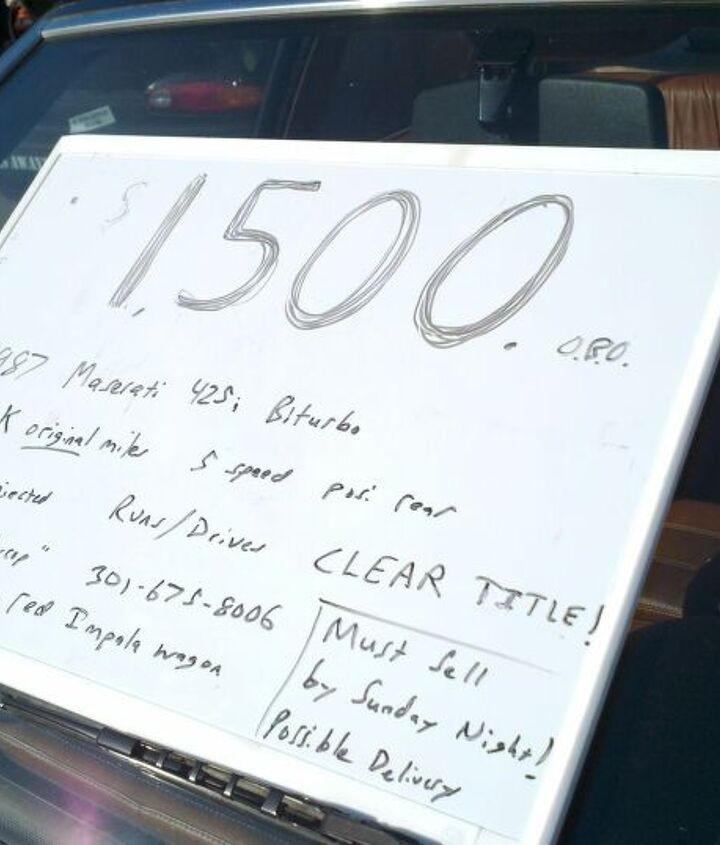 $1,500. O.B.O.
987 Maserati 425i Biturbo
K original miles 5 speed posi rear
jected Runs/Drives CLEAR TITLE!
" 301-675-8006
red Impala wagon
Must Sell
by Sunday Night!
Possible Delivery